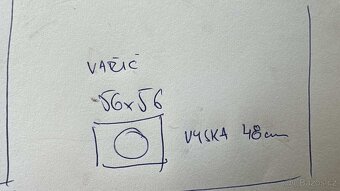 VAŘIČ
56x56
VYSKA 48cm